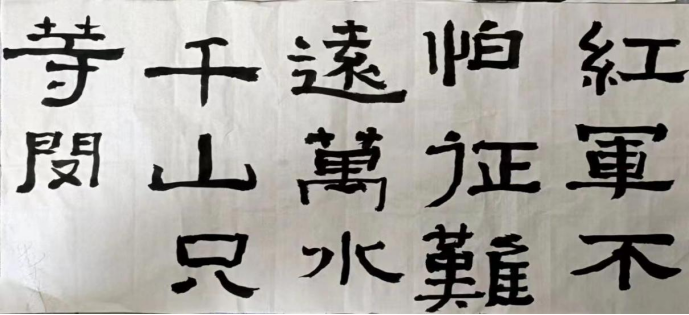 紅軍不
怕征難
遠萬水
千山只
等閔